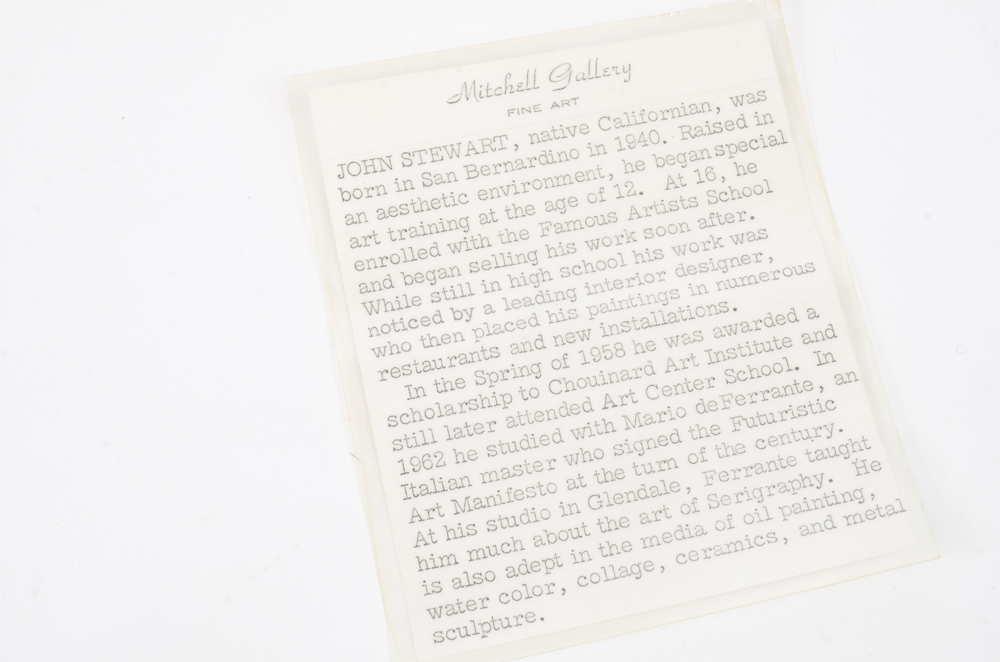 Mitchell Gallery
FINE ART
JOHN STEWART, native Californian, was
born in San Bernardino in 1940. Raised in
an aesthetic environment, he began special
art training at the age of 12. At 16, he
enrolled with the Famous Artists School
and began selling his work soon after.
While still in high school his work was
noticed by a leading interior designer,
who then placed his paintings in numerous
restaurants and new installations.
In the Spring of 1958 he was awarded a
scholarship to Chouinard Art Institute and
still later attended Art Center School. In
1962 he studied with Mario deFerrante, an
Italian master who signed the Futuristic
Art Manifesto at the turn of the century.
At his studio in Glendale, Ferrante taught
him much about the art of Serigraphy. He
is also adept in the media of oil painting,
water color, collage, ceramics, and metal
sculpture.